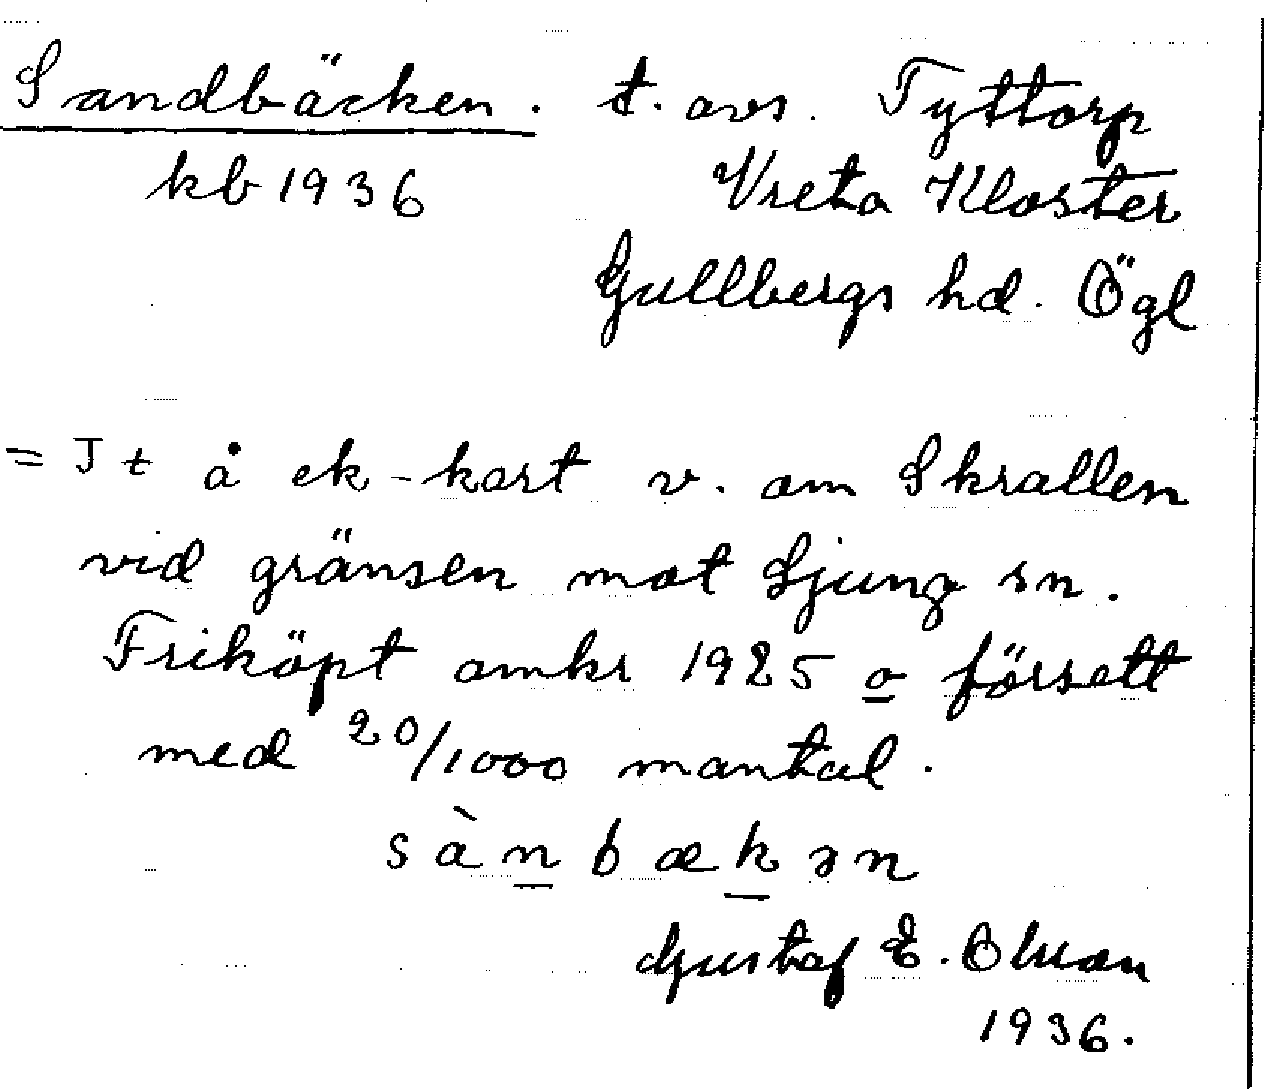 Sandbäcken. t. avs. Tyttorp
kb 1936 Vreta Kloster
Gullbergs hd. Ögl
= Jt å ek-kart v. om Skrallen
vid gränsen mot Ljung sn.
Friköpt omkr 1925 o försett
med 20/1000 mantal.
sànbækən
Gustaf E. Olsson
1936.